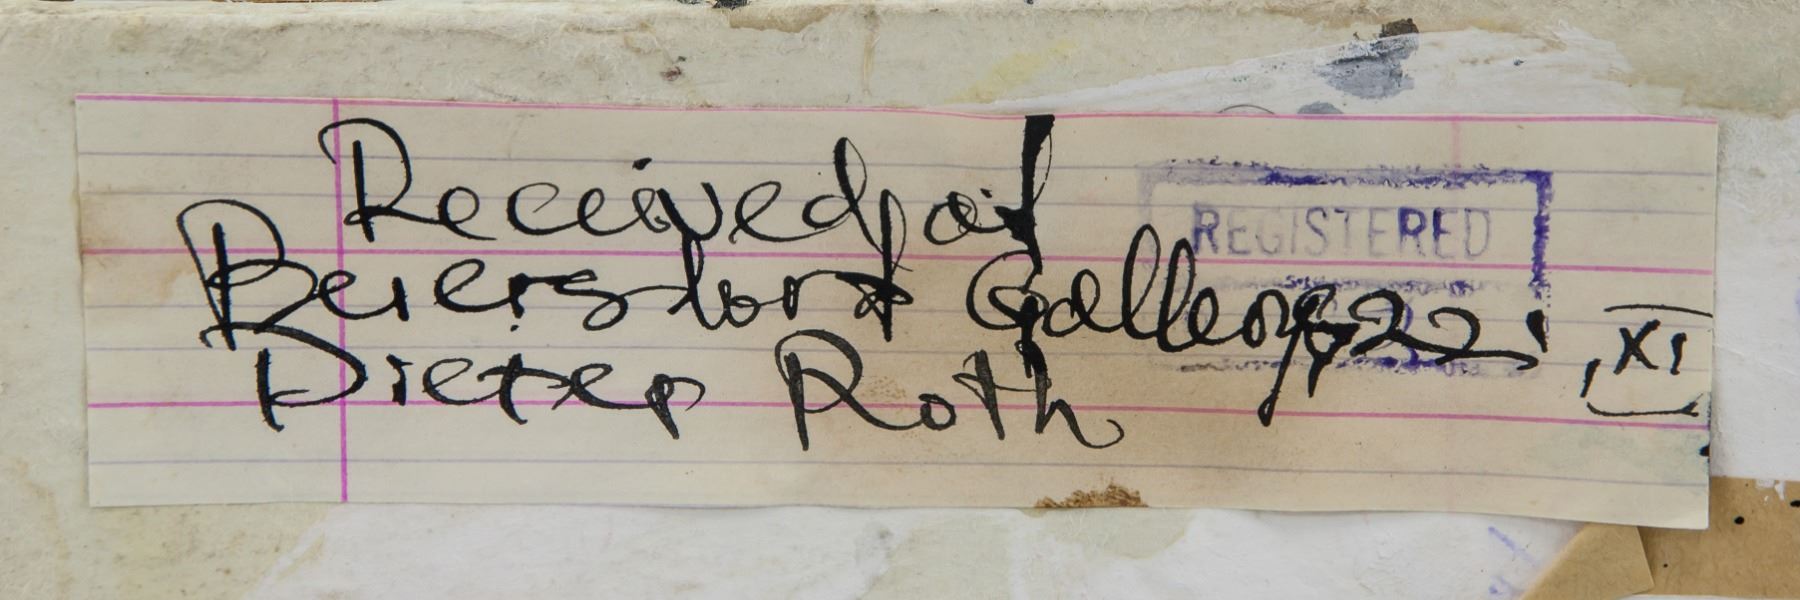 Received at
REGISTERED
Beiersdorf Gallery 22. XI
Dieter Roth